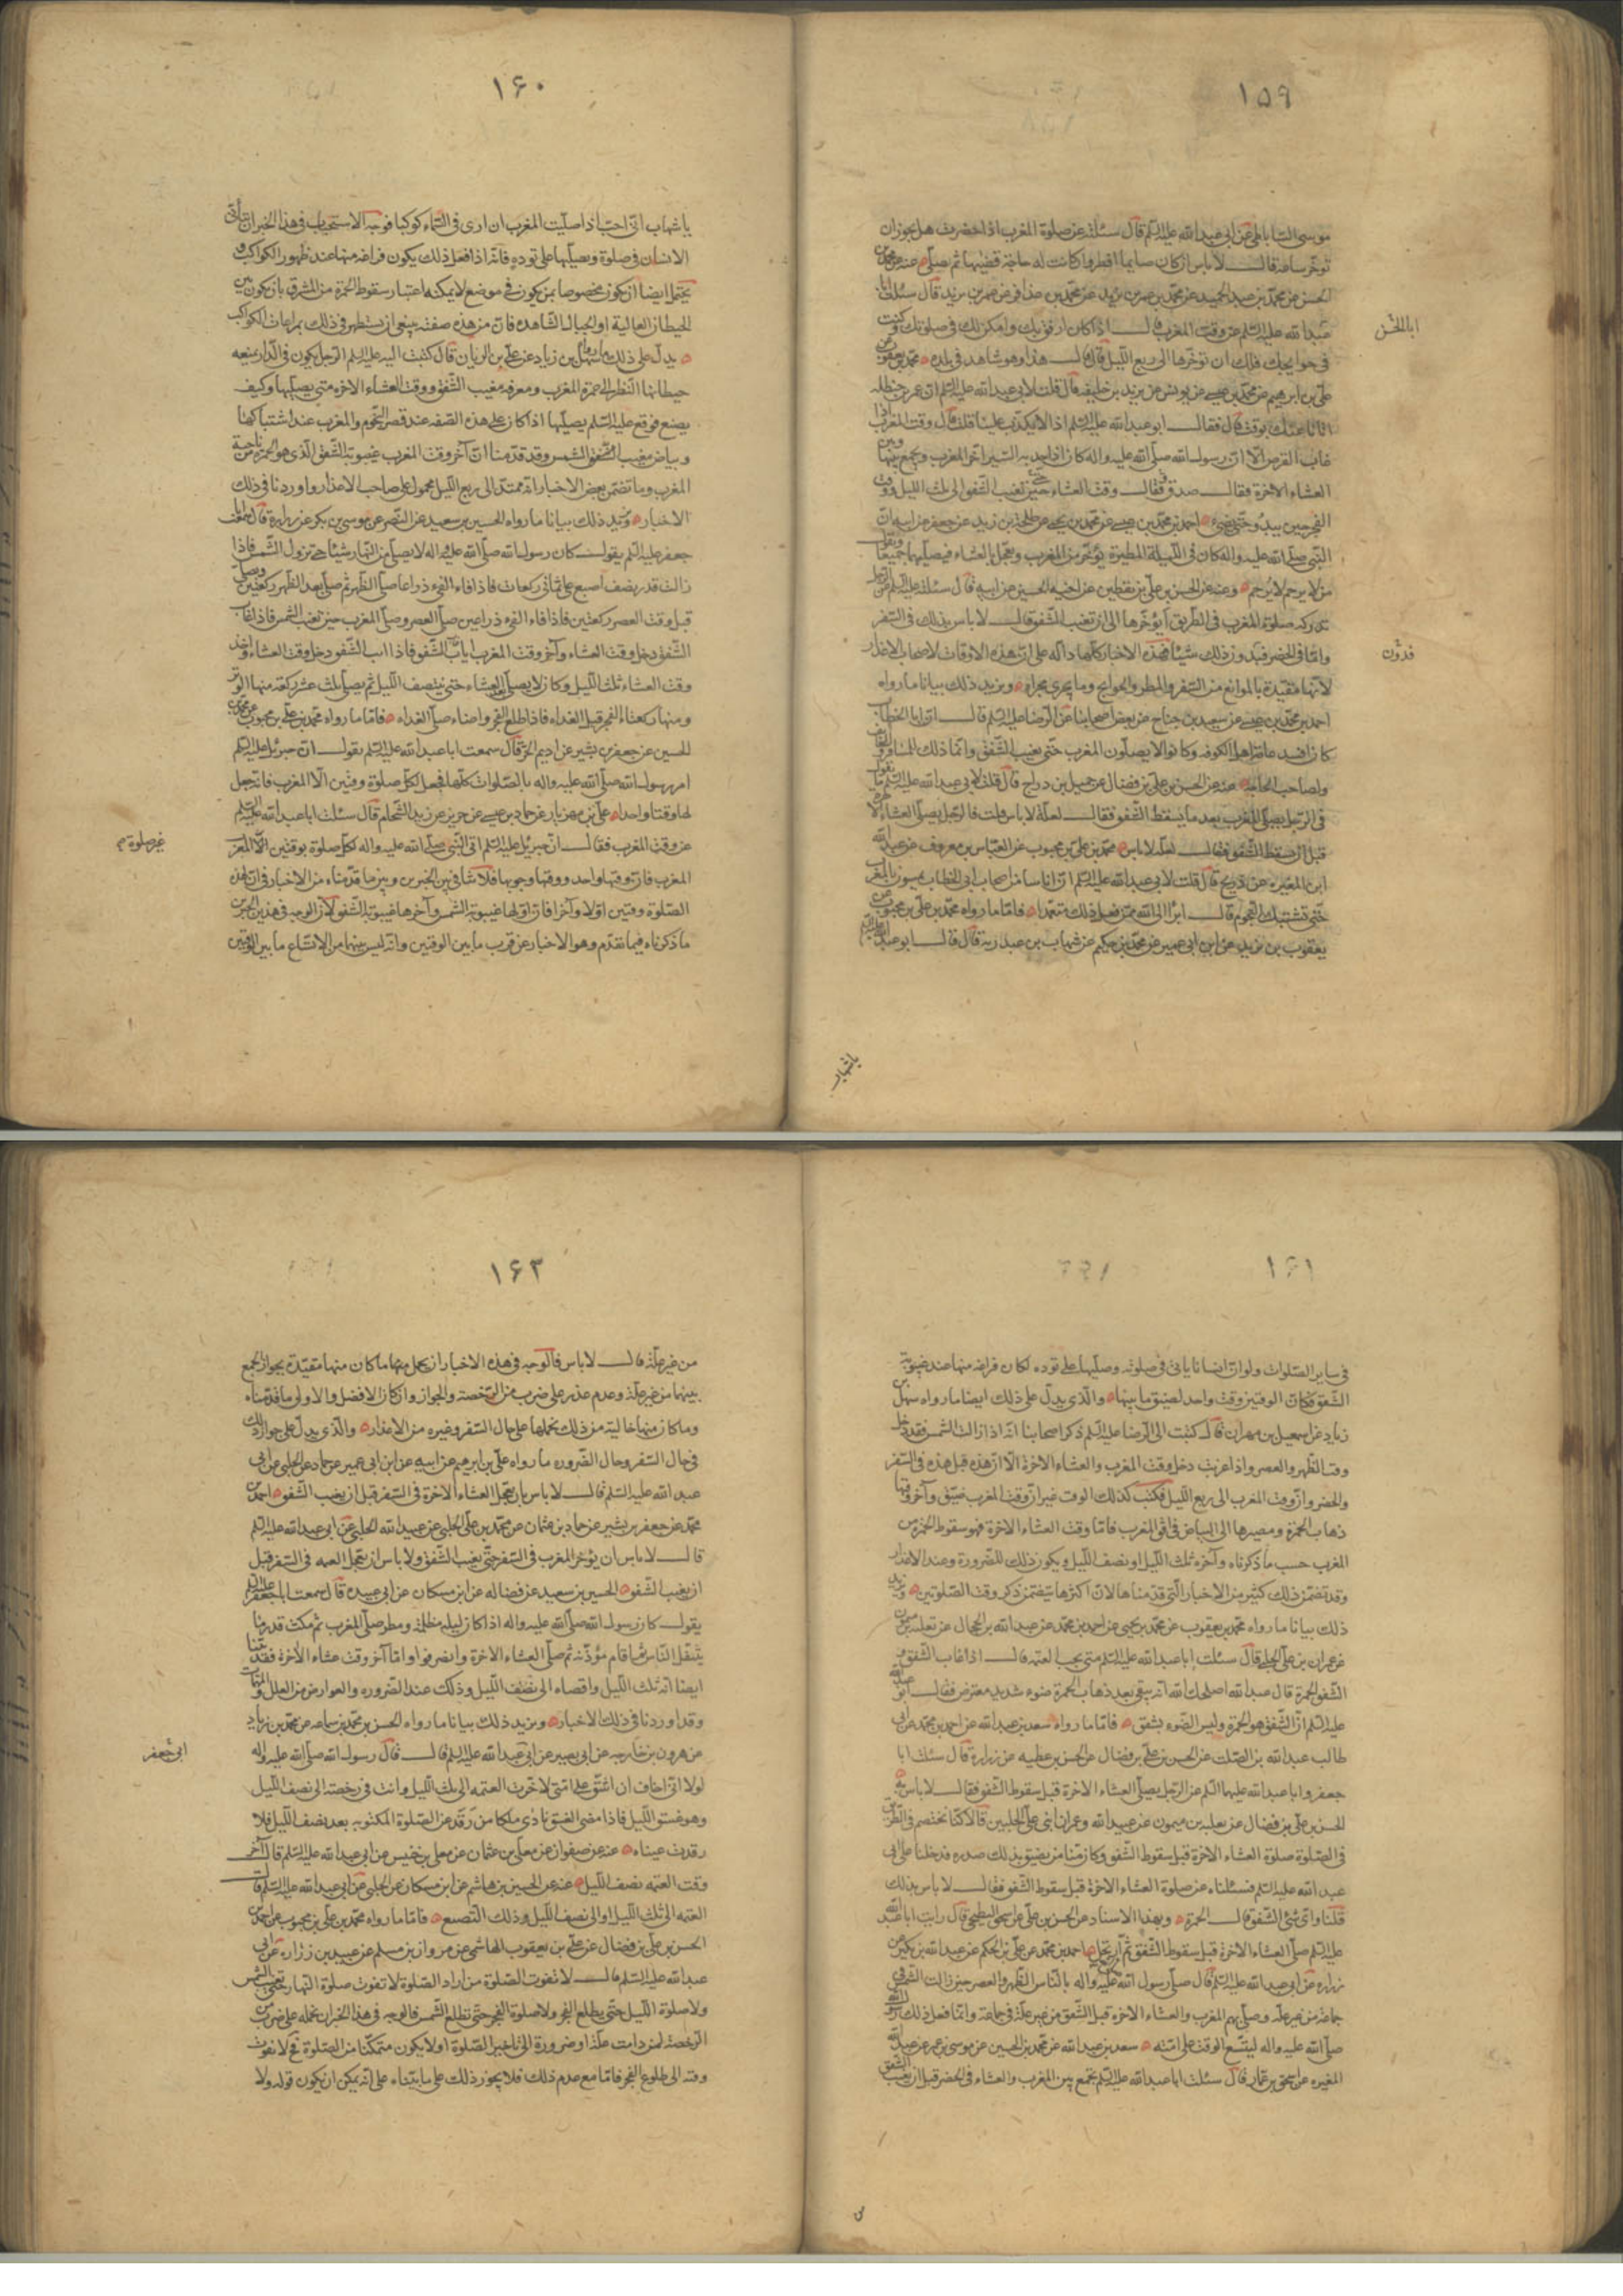 ١٥٩
موسى الساباطى عن ابى عبد الله عليه السلم قال سئلته عن صلوة المغرب اذا حضرت هل يجوز ان
تؤخر ساعة قال لا باس ان كان صايما افطر وان كانت له حاجة قضيها ثم يصلى عنه عن محمد بن
الحسن عن محمد بن عبد الحميد عن محمد بن عمر بن يزيد عن محمد بن عذافر عن عمر بن يزيد قال سئلت ابا
عبد الله عليه السلم عن وقت المغرب فقال اذا كان ارفق بك وامكن لك فى صلوتك وكنت
فى حوايجك فلك ان تؤخرها الى ربع الليل قال قال لى هذا وهو شاهد فى بلده محمد بن يعقوب عن
على بن ابرهيم عن محمد بن عيسى عن يونس عن يزيد بن خليفه قال قلت لابى عبد الله عليه السلم ان عمر بن حنظله
اتانا عنك بوقت قال فقال ابو عبد الله عليه السلم اذا لا يكذب علينا قلت قال وقت المغرب اذا
غاب القرص الا ان رسول الله صلى الله عليه واله كان اذا جد به السير اخر المغرب ويجمع بينها وبين
العشاء الاخرة فقال صدق وقال وقت العشاء حين تغيب الشفق الى ثلث الليل ووقت
الفجر حين يبدو حتى يضىء احمد بن محمد بن عيسى عن محمد بن يحيى عن طلحة بن زيد عن جعفر عن ابيه ان
النبى صلى الله عليه واله كان فى الليلة المطيرة يؤخر من المغرب ويعجل بالعشاء فيصليهما جميعا ويقول
من لا يرحم لا يرحم وعنه عن الحسن بن على بن يقطين عن اخيه الحسين عن ابيه قال سئلته عليه السلم عن الرجل
تدركه صلوة المغرب فى الطريق ايؤخرها الى ان تغيب الشفق قال لا باس بذلك فى السفر
واما فى الحضر فيدون ذلك شيئا فهذه الاخبار كلها دالة على ان هذه الاوقات لاصحاب الاعذار
لانها مقيدة بالموانع من السفر والمطر والحوايج وما يجرى مجراه ويزيد ذلك بيانا ما رواه
احمد بن محمد بن عيسى عن سعيد بن جناح عن بعض اصحابنا عن الرضا عليه السلم قال ان ابا الخطاب
كان افسد عامة اهل الكوفه وكانوا لا يصلون المغرب حتى يغيب الشفق وانما ذلك للمسافر والخائف
ولصاحب الحاجة عنه عن الحسن بن على بن فضال عن جميل بن دراج قال قلت لابى عبد الله عليه السلم ما تقول
فى الرجل يصلى المغرب بعد ما يسقط الشفق فقال لعلة لا باس قلت فالرجل يصلى العشاء الاخرة
قبل ان يسقط الشفق فقال لعلة لا باس محمد بن على بن محبوب عن العباس بن معروف عن عبد الله
ابن المغيره عن ذريح قال قلت لابى عبد الله عليه السلم ان اناسا من اصحاب ابى الخطاب يمسون بالمغرب
حتى تشتبك النجوم قال ابرا الى الله ممن فعل ذلك متعمدا فاما ما رواه محمد بن على بن محبوب عن
يعقوب بن يزيد عن ابن ابى عمير عن محمد بن حكيم عن شهاب بن عبد ربه قال قال ابو عبد الله عليه السلم
ابا الحسن
فدون
يا شهاب
١۶٠
يا شهاب انى احب اذا صليت المغرب ان ارى فى السماء كوكبا فوجه الاستحباب فى هذا الخبر ان يتأنى
الانسان فى صلوة ويصليها على توده فانه اذا فعل ذلك يكون فراغه منها عند ظهور الكواكب و
يحتمل ايضا ان يكون مخصوصا بمن يكون فى موضع لا يمكنه اعتبار سقوط الحمرة من المشرق بان يكون بين
الحيطان العالية او الجبال الشاهده فان من هذه صفته ينبغى ان يستظهر فى ذلك بمراعات الكواكب
يدل على ذلك ما رواه سهل بن زياد عن على بن الريان قال كتبت اليه عليه السلم الرجل يكون فى الدار يمنعه
حيطانها النظر الى حمرة المغرب ومعرفه مغيب الشفق ووقت العشاء الاخره متى يصليها وكيف
يصنع فوقع عليه السلم يصليها اذا كان على هذه الصفه عند قصر النجوم والمغرب عند اشتباكها
وبياض مغيب الشفق الشمس وقد قدمنا ان آخر وقت المغرب غيبوبة الشفق الذى هو الحمرة من ناحية
المغرب وما تضمن بعض الاخبار انه ممتد الى ربع الليل محمول على صاحب الاعذار واوردنا فى ذلك
الاخبار ويزيد ذلك بيانا ما رواه الحسين بن سعيد عن النضر عن موسى بن بكر عن زرارة قال سمعت ابا
جعفر عليه السلم يقول كان رسول الله صلى الله عليه واله لا يصلى من النهار شيئا حتى تزول الشمس فاذا
زالت قدر نصف اصبع صلى ثمانى ركعات فاذا فاء الفىء ذراعا صلى الظهر ثم صلى بعد الظهر ركعتين ويصلى
قبل وقت العصر ركعتين فاذا فاء الفىء ذراعين صلى العصر وصلى المغرب حين تغيب الشمس فاذا غاب
الشفق دخل وقت العشاء وآخر وقت المغرب اياب الشفق فاذا اب الشفق دخل وقت العشاء وآخر
وقت العشاء ثلث الليل وكان لا يصلى بعد العشاء حتى ينتصف الليل ثم يصلى ثلث عشر ركعة منها الوتر
ومنها ركعتا الفجر قبل الغداه فاذا طلع الفجر واضاء صلى الغداه فاما ما رواه محمد بن على بن محبوب عن محمد بن
الحسين عن جعفر بن بشير عن اديم الحر قال سمعت ابا عبد الله عليه السلم يقول ان جبرئيل عليه السلم
امر رسول الله صلى الله عليه واله بالصلوات كلها فجعل لكل صلوة وقتين الا المغرب فانه جعل
لها وقتا واحدا على بن مهزيار عن حماد بن عيسى عن حريز عن زيد الشحام قال سئلت ابا عبد الله عليه السلم
عن وقت المغرب فقال ان جبرئيل عليه السلم اتى النبى صلى الله عليه واله لكل صلوة بوقتين الا المغرب
المغرب فان وقتها واحد ووقتها وجوبها فلا تنافى بين الخبرين وبين ما قدمناه من الاخبار فى ان لهذه
الصلوة وقتين اولا وآخرا فان اولها غيبوبة الشمس وآخرها غيبوبة الشفق لان الوجه فى هذين الخبرين
ما ذكرناه فيما تقدم وهو الاخبار عن قرب ما بين الوقتين وانه ليس بينهما من الاتساع ما بين الوقتين
غير صلوة
١۶١
فى ساير الصلوات ولو ان انسانا يانى فى صلوته وصليها على توده لكان فراغه منها عند غيبوبة
الشفق فكان الوقتين وقت واحد لضيق ما بينها والذى يدل على ذلك ايضا ما رواه سهل بن
زياد عن اسمعيل بن مهران قال كتبت الى الرضا عليه السلم ذكر اصحابنا انه اذا زالت الشمس فقد دخل
وقت الظهر والعصر واذا غربت دخل وقت المغرب والعشاء الاخرة الا ان هذه قبل هذه فى السفر
والحضر وان وقت المغرب الى ربع الليل فكتب كذلك الوقت غير ان وقت المغرب ضيق وآخر وقتها
ذهاب الحمرة ومصيرها الى البياض فى افق المغرب فاما وقت العشاء الاخرة فهو سقوط الحمرة من
المغرب حسب ما ذكرناه وآخره ثلث الليل او نصف الليل ويكون ذلك للضرورة وعند الاعذار
وقد تضمن ذلك كثير من الاخبار التى قدمناها لان اكثرها يتضمن ذكر وقت الصلوتين ويزيد
ذلك بيانا ما رواه محمد بن يعقوب عن محمد بن يحيى عن احمد بن محمد عن عبد الله بن الحجال عن ثعلبة بن ميمون
عن عمران بن على الحلبى قال سئلت ابا عبد الله عليه السلم متى يجب العتمه قال اذا غاب الشفق و
الشفق الحمرة قال عبد الله اصلحك الله انه يبقى بعد ذهاب الحمرة ضوء شديد معترض فقال ابو عبد الله
عليه السلم ان الشفق هو الحمرة وليس الضوء بشفق فاما ما رواه سعد بن عبد الله عن احمد بن محمد عن ابى
طالب عبد الله بن الصلت عن الحسن بن على بن فضال عن الحسن بن عطيه عن زرارة قال سئلت ابا
جعفر وابا عبد الله عليهما السلم عن الرجل يصلى العشاء الاخرة قبل سقوط الشفق فقال لا باس به
الحسن بن على بن فضال عن ثعلبه بن ميمون عن عبيد الله وعمران ابنى على الحلبيين قالا كنا نختصم فى الطريق
فى الصلوة صلوة العشاء الاخرة قبل سقوط الشفق وكان منا من يضيق بذلك صدره فدخلنا على ابى
عبد الله عليه السلم فسئلناه عن صلوة العشاء الاخرة قبل سقوط الشفق فقال لا باس بذلك
قلنا واى شئ الشفق قال الحمرة وبهذا الاسناد عن الحسن بن على عن اسحق البطيخى قال رايت ابا عبد الله
عليه السلم صلى العشاء الاخرة قبل سقوط الشفق ثم ارتحل احمد بن محمد عن على بن الحكم عن عبد الله بن بكير عن
زراره عن ابى عبد الله عليه السلم قال صلى رسول الله صلى الله عليه واله بالناس الظهر والعصر حين زالت الشمس فى
جماعة من غير علة وصلى بهم المغرب والعشاء الاخرة قبل الشفق من غير علة فى جماعة وانما فعل ذلك رسول الله
صلى الله عليه واله ليتسع الوقت على امته سعد بن عبد الله عن محمد بن الحسين عن موسى بن عمر عن عبد الله
المغيره عن اسحق بن عمار قال سئلت ابا عبد الله عليه السلم يجمع بين المغرب والعشاء فى الحضر قبل ان يغيب الشفق
١۶٢
من غير علة قال لا باس فالوجه فى هذه الاخبار ان يحمل منها ما كان منها مقيدة بجواز الجمع
بينهما من غير علة وعدم عذر على ضرب من الرخصة والجواز وان كان الافضل والاولى ما قدمناه
وما كان منها خالية من ذلك نحملها على حال السفر وغيره من الاعذار والذى يدل على جواز ذلك
فى حال السفر وحال الضروره ما رواه على بن ابرهيم عن ابيه عن ابن ابى عمير عن حماد عن الحلبى عن ابى
عبد الله عليه السلم قال لا باس بان يعجل العشاء الاخرة فى السفر قبل ان يغيب الشفق احمد بن
محمد عن جعفر بن بشير عن حماد بن عثمان عن محمد بن على الحلبى عن عبيد الله الحلبى عن ابى عبد الله عليه السلم
قال لا باس ان يؤخر المغرب فى السفر حتى يغيب الشفق ولا باس ان يعجل العتمه فى السفر قبل
ان يغيب الشفق الحسين بن سعيد عن فضاله عن ابن مسكان عن ابى عبيده قال سمعت ابا جعفر عليه السلم
يقول كان رسول الله صلى الله عليه واله اذا كان ليلة مظلمة ومطر صلى المغرب ثم مكث قدر ما
يتنفل الناس ثم اقام مؤذنه ثم صلى العشاء الاخرة وانصرفوا واما آخر وقت عشاء الاخرة فقد بينا
ايضا انه ثلث الليل واقصاه الى نصف الليل وذلك عند الضروره والعوارض من العلل
وقد اوردنا فى ذلك الاخبار ويزيد ذلك بيانا ما رواه الحسن بن محمد بن سماعه عن محمد بن زياد
عن هرون بن خارجه عن ابى بصير عن ابى عبد الله عليه السلم قال قال رسول الله صلى الله عليه واله
لولا انى اخاف ان اشق على امتى لاخرت العتمه الى ثلث الليل وانت فى رخصة الى نصف الليل
وهو غسق الليل فاذا مضى الغسق نادى ملكان من رقد عن الصلوة المكتوبه بعد نصف الليل فلا
رقدت عيناه عنه عن صفوان عن معلى بن عثمان عن معلى بن خنيس عن ابى عبد الله عليه السلم قال آخر
وقت العتمه نصف الليل عنه عن الحسين بن هاشم عن ابن مسكان عن الحلبى عن ابى عبد الله عليه السلم قال
العتمه الى ثلث الليل او الى نصف الليل وذلك التضييع فاما ما رواه محمد بن على بن محبوب عن احمد بن
الحسن بن على بن فضال عن على بن يعقوب الهاشمى عن مروان بن مسلم عن عبيد بن زراره عن ابى
عبد الله عليه السلم قال لا تفوت الصلوة من اراد الصلوة لا تفوت صلوة النهار حتى تغيب الشمس
ولا صلوة الليل حتى يطلع الفجر ولا صلوة الفجر حتى تطلع الشمس فالوجه فى هذا الخبر ان نحمله على ضرب من
الرخصة لمن دامت علة او ضرورة الى تاخير الصلوة اولا يكون متمكنا من الصلوة فح لا تفوت
وقته الى طلوع الفجر فاما مع عدم ذلك فلا يجوز ذلك على ما بيناه على انه يمكن ان يكون قوله ولا
ابى جعفر